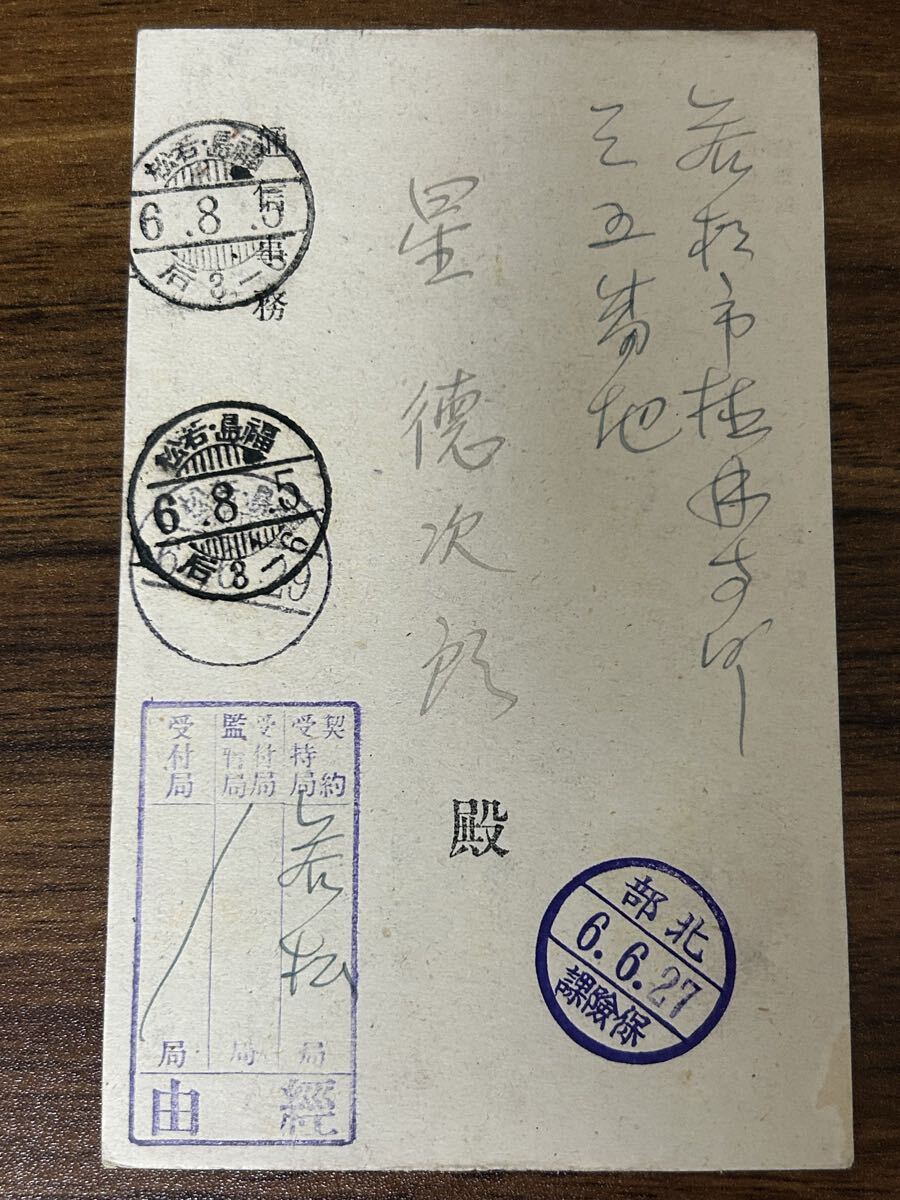 若松市桂林寺町
三五番地
星德次郎
殿
通信事務
福島・若松
6.8.5
后3-6
福島・若松
6.8.5
后3-6
29
北部
6.6.27
保險課
契約
受持局
受付局
監督局
受付局
若松
局
局
局
經由